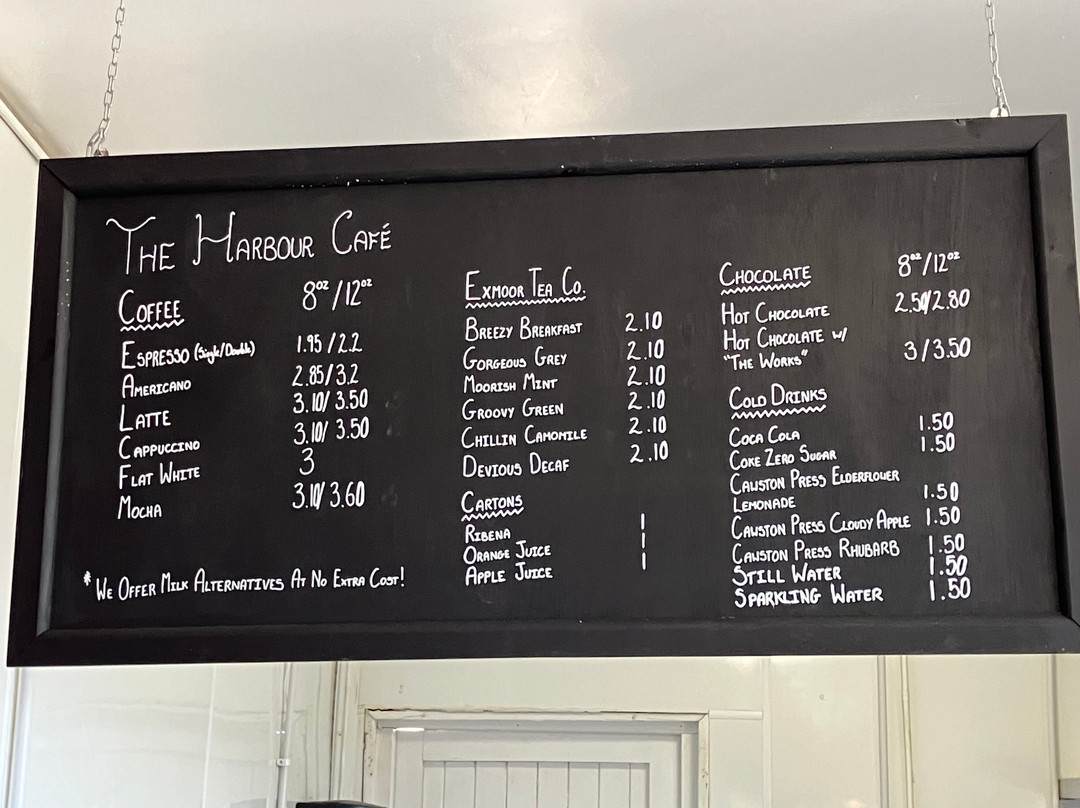 THE HARBOUR CAFÉ
COFFEE 8oz/12oz
ESPRESSO (Single/Double) 1.95/2.2
AMERICANO 2.85/3.2
LATTE 3.10/3.50
CAPPUCCINO 3.10/3.50
FLAT WHITE 3
MOCHA 3.10/3.60
*WE OFFER MILK ALTERNATIVES AT NO EXTRA COST!
EXMOOR TEA CO.
BREEZY BREAKFAST 2.10
GORGEOUS GREY 2.10
MOORISH MINT 2.10
GROOVY GREEN 2.10
CHILLIN CAMOMILE 2.10
DEVIOUS DECAF 2.10
CARTONS
RIBENA 1
ORANGE JUICE 1
APPLE JUICE 1
CHOCOLATE 8oz/12oz
HOT CHOCOLATE 2.50/2.80
HOT CHOCOLATE W/
"THE WORKS" 3/3.50
COLD DRINKS
COCA COLA 1.50
COKE ZERO SUGAR 1.50
CAWSTON PRESS ELDERFLOWER
LEMONADE 1.50
CAWSTON PRESS CLOUDY APPLE 1.50
CAWSTON PRESS RHUBARB 1.50
STILL WATER 1.50
SPARKLING WATER 1.50